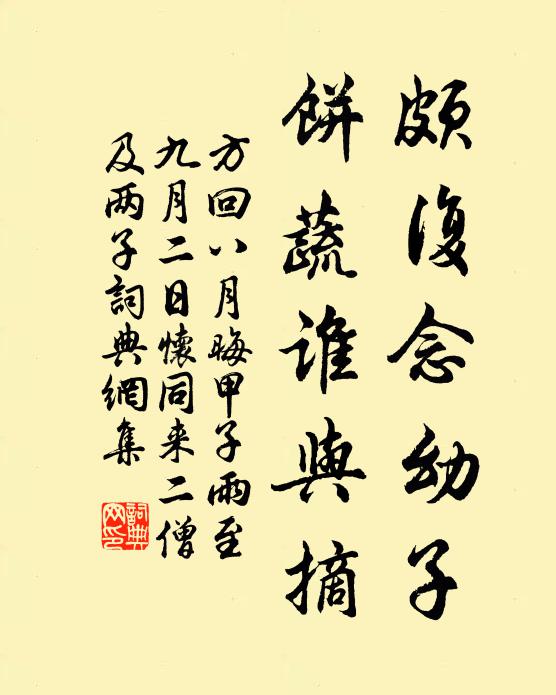 頗復念幼子
餅蔬谁與摘
方回八月晦甲子雨至
九月二日懷同来二僧
及两子詞典網集
詞典
网印